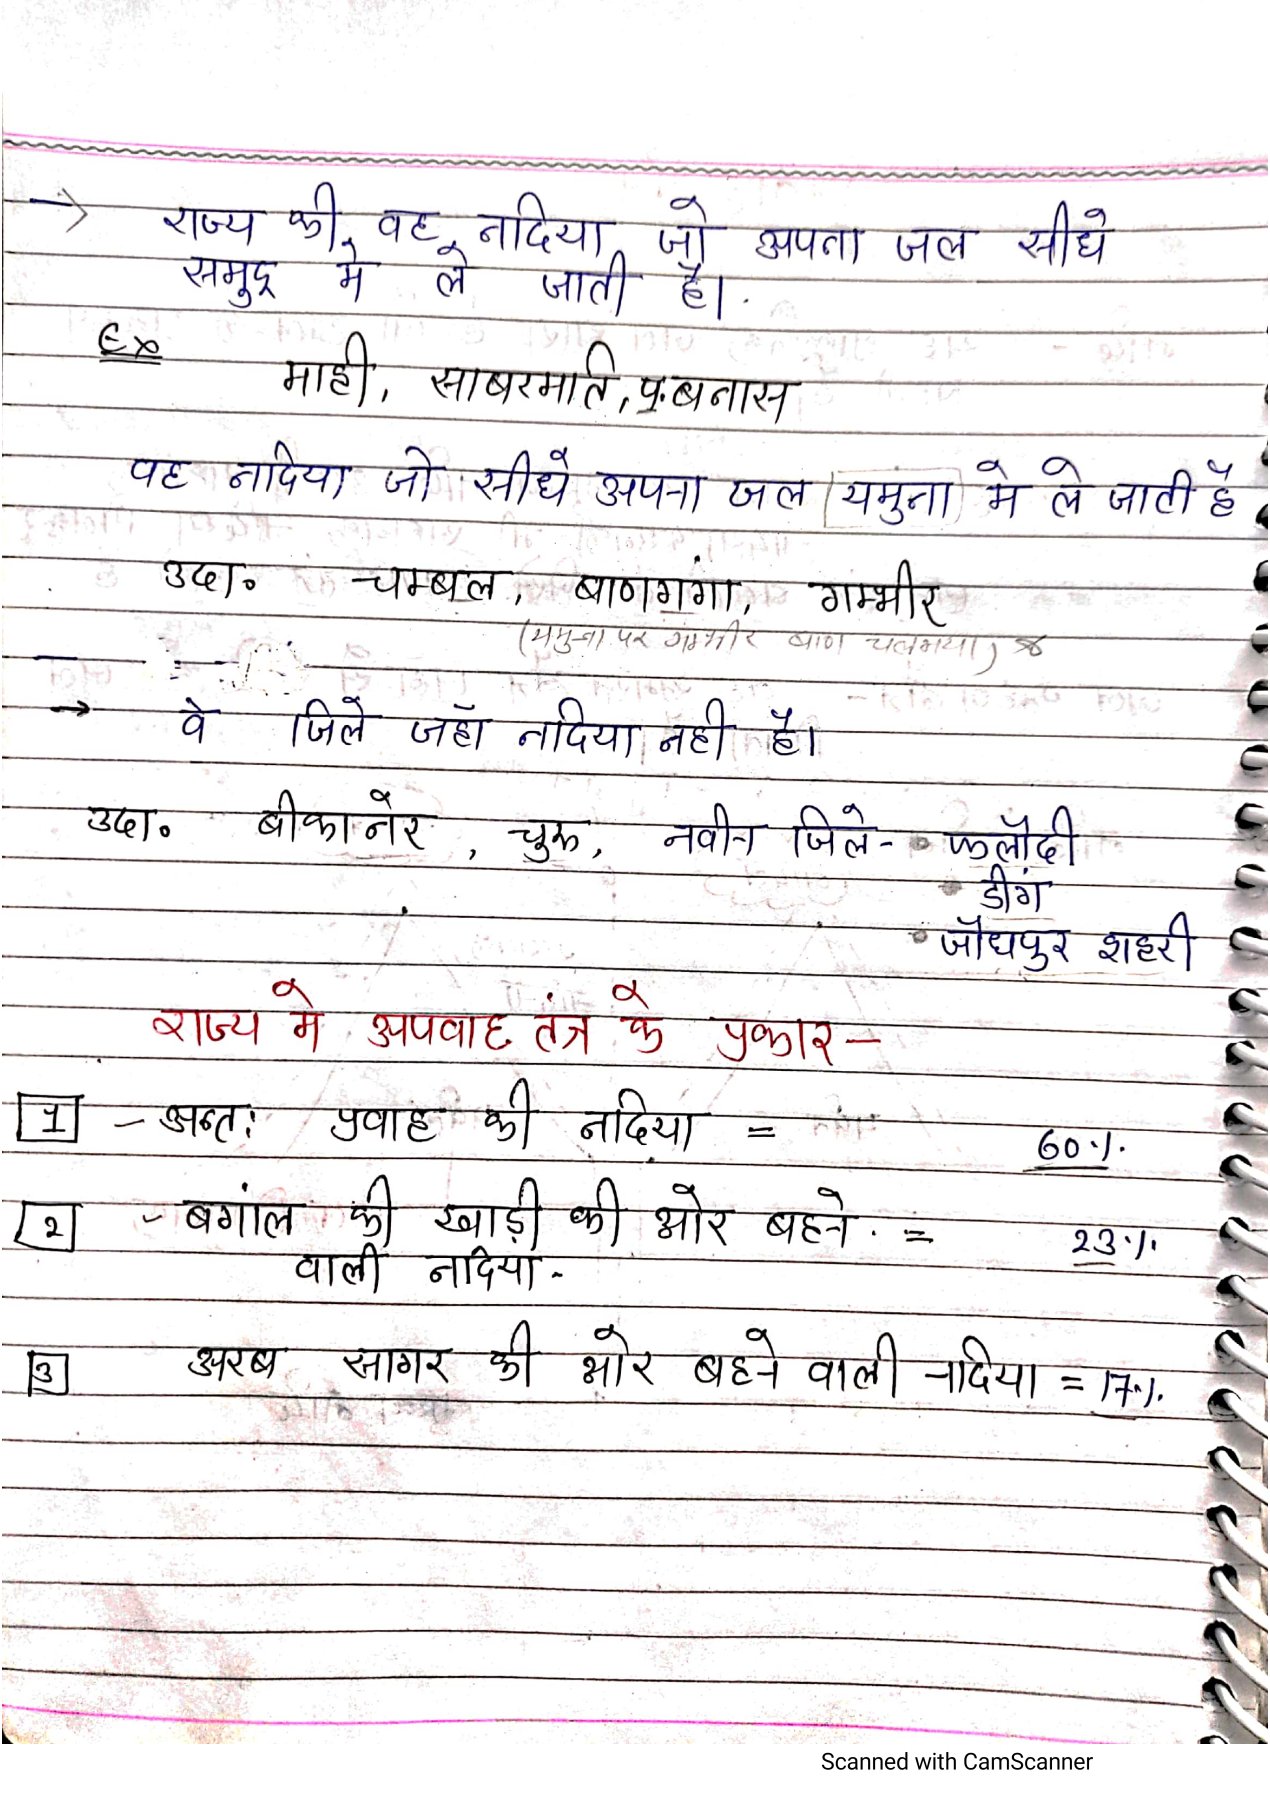 → राज्य की वह नदिया जो अपना जल सीधे
समुद्र मे ले जाती है।
Ex
माही, साबरमति, प.बनास
वह नदिया जो सीधे अपना जल (यमुना) मे ले जाती है
उदा० चम्बल, बाणगंगा, गम्भीर
(यमुना पर गम्भीर बाण चलगया)
→ वे जिले जहाँ नदिया नही है।
उदा० बीकानेर, चुरू, नवीन जिले- • फलौदी
• डीग
• जौधपुर शहरी
राज्य मे अपवाह तंत्र के प्रकार –
1 - अन्त: प्रवाह की नदिया = 60%
2 - बगांल की खाड़ी की ओर बहने = 23%
वाली नदिया -
3 अरब सागर की ओर बहने वाली नदिया = 17%
Scanned with CamScanner